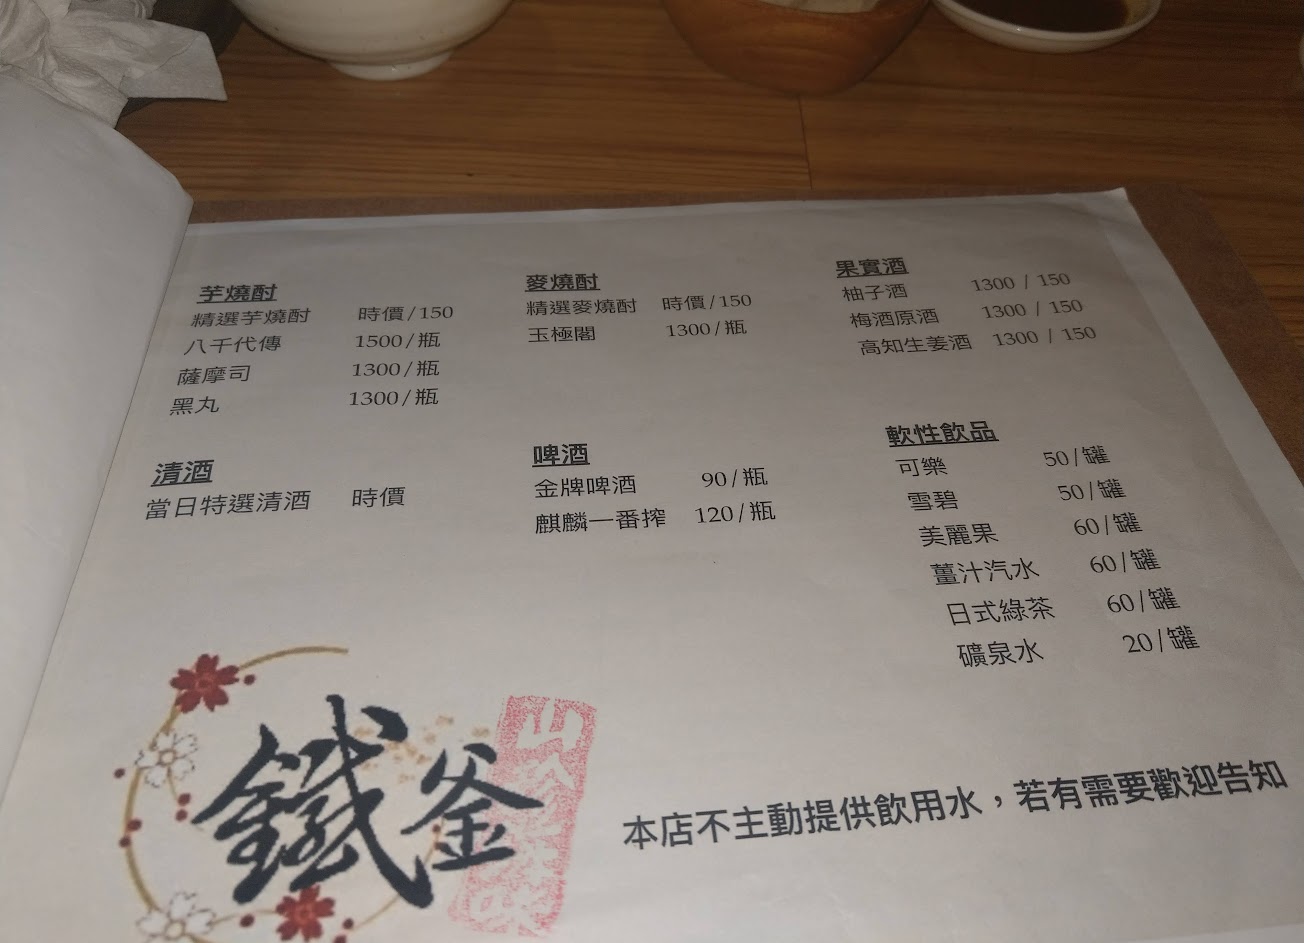 芋燒酎
精選芋燒酎 時價/150
八千代傳 1500/瓶
薩摩司 1300/瓶
黑丸 1300/瓶
麥燒酎
精選麥燒酎 時價/150
玉極閣 1300/瓶
果實酒
柚子酒 1300 / 150
梅酒原酒 1300 / 150
高知生姜酒 1300 / 150
清酒
當日特選清酒 時價
啤酒
金牌啤酒 90/瓶
麒麟一番搾 120/瓶
軟性飲品
可樂 50/罐
雪碧 50/罐
美麗果 60/罐
薑汁汽水 60/罐
日式綠茶 60/罐
礦泉水 20/罐
鐵釜
本店不主動提供飲用水，若有需要歡迎告知